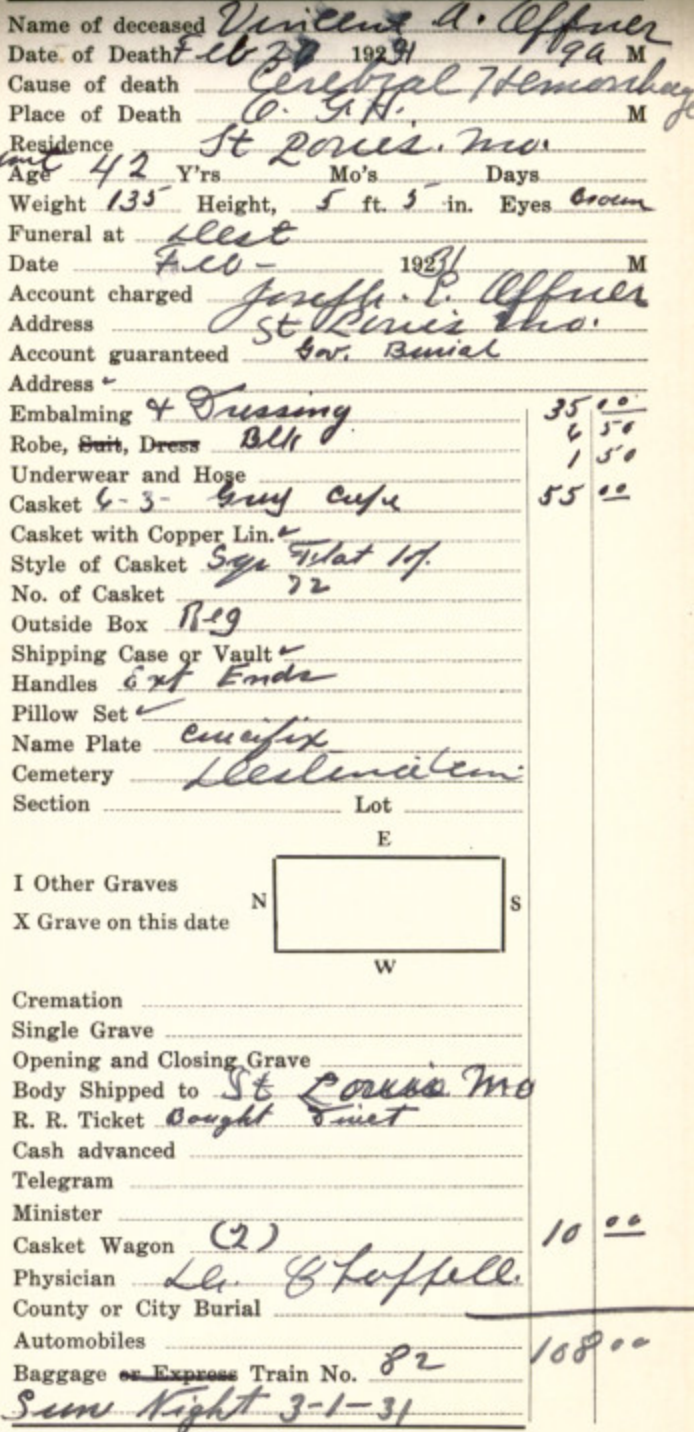 Name of deceased Vincent A. Offner
Date of Death Feb 28 1931 9a M
Cause of death Cerebral Hemorrhage
Place of Death O. G. H. M
Residence St Louis. Mo.
Age 42 Y'rs Mo's Days
Weight 135 Height, 5 ft. 5 in. Eyes Brown
Funeral at Dest
Date Feb - 1931 M
Account charged Joseph. E. Offner
Address St Louis Mo.
Account guaranteed Gov. Burial
Address
Embalming & Dressing 35 00
Robe, Suit, Dress Blk 6 50
Underwear and Hose 1 50
Casket 6-3- Grey Crepe 55 00
Casket with Copper Lin.
Style of Casket Sqr Flat
No. of Casket 72
Outside Box Reg
Shipping Case or Vault
Handles Ext Ends
Pillow Set
Name Plate Crucifix
Cemetery Destination
Section Lot
E
I Other Graves
N S
X Grave on this date
W
Cremation
Single Grave
Opening and Closing Grave
Body Shipped to St Louis Mo
R. R. Ticket Bought
Cash advanced
Telegram
Minister
Casket Wagon (2) 10 00
Physician Dr. Chappell.
County or City Burial
Automobiles 108 00
Baggage or Express Train No. 82
Sun Night 3-1-31